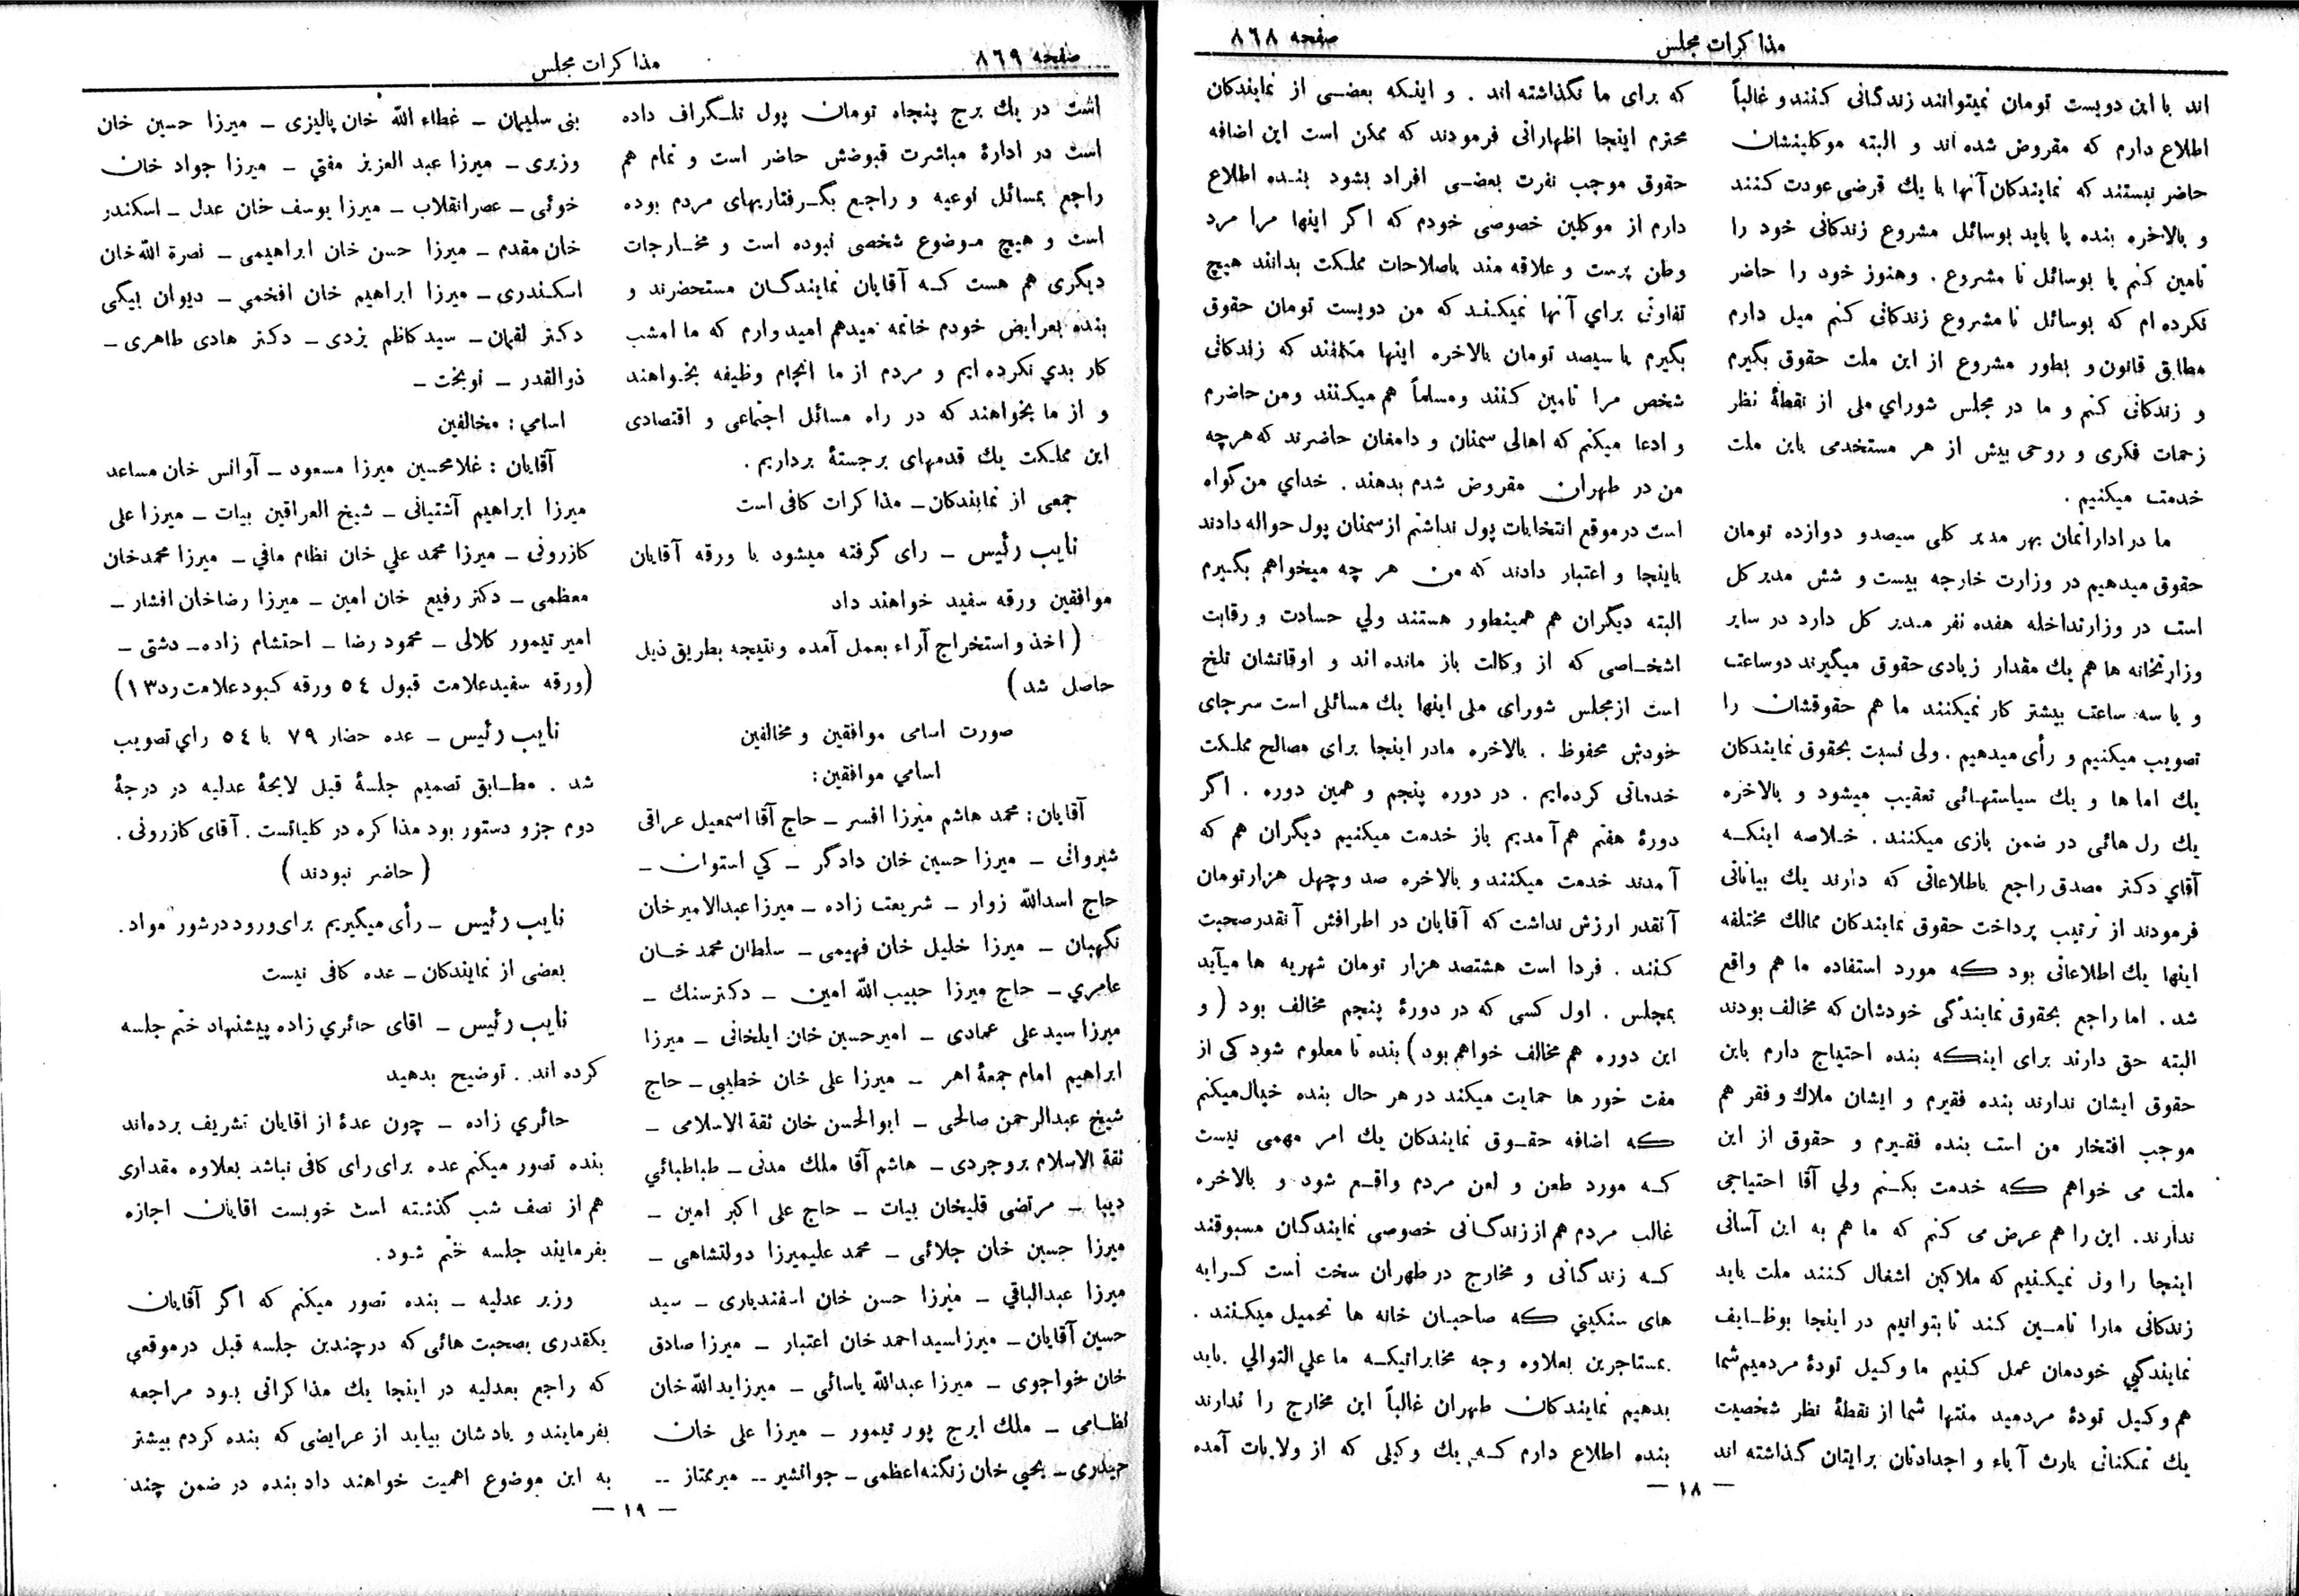 صفحه ٨٦٨
مذاكرات مجلس
اند با اين دويست تومان نميتوانند زندگانى كنند و غالباً
اطلاع دارم كه مقروض شده اند و البته موكلينشان
حاضر نيستند كه نمايندكان آنها با يك قرضى عودت كنند
و بالاخره بنده يا بايد بوسائل مشروع زندكانى خود را
تامين كنم يا بوسائل نا مشروع . وهنوز خود را حاضر
نكرده ام كه بوسائل نا مشروع زندكانى كنم ميل دارم
مطابق قانون و بطور مشروع از اين ملت حقوق بگيرم
و زندكانى كنم و ما در مجلس شوراي ملى از نقطۀ نظر
زحمات فكرى و روحى بيش از هر مستخدمى باين ملت
خدمت ميكنيم .
ما در ادارانمان بهر مدير كلى سيصدو دوازده تومان
حقوق ميدهيم در وزارت خارجه بيست و شش مدير كل
است در وزارتداخله هفده نفر مدير كل دارد در ساير
وزارتخانه ها هم يك مقدار زيادى حقوق ميگيرند دوساعت
و يا سه ساعت بيشتر كار نميكنند ما هم حقوقشان را
تصويب ميكنيم و رأى ميدهيم . ولى نسبت بحقوق نمايندكان
يك اما ها و يك سياستهائى تعقيب ميشود و بالاخره
يك رل هائى در ضمن بازى ميكنند . خلاصه اينكه
آقاي دكتر مصدق راجع باطلاعاتى كه دارند يك بياناتى
فرمودند از ترتيب پرداخت حقوق نمايندكان ممالك مختلفه
اينها يك اطلاعاتى بود كه مورد استفاده ما هم واقع
شد . اما راجع بحقوق نمايندگى خودشان كه مخالف بودند
البته حق دارند براى اينكه بنده احتياج دارم باين
حقوق ايشان ندارند بنده فقيرم و ايشان ملاك و فقر هم
موجب افتخار من است بنده فقيرم و حقوق از اين
ملت مى خواهم كه خدمت بكنم ولي آقا احتياجى
ندارند. اين را هم عرض مى كنم كه ما هم به اين آسانى
اينجا را ول نميكنيم كه ملاكين اشغال كنند ملت بايد
زندكانى مارا تامين كند تا بتوانيم در اينجا بوظايف
نمايندگي خودمان عمل كنيم ما وكيل تودۀ مردميم شما
هم وكيل تودۀ مردميد منتها شما از نقطۀ نظر شخصيت
يك تمكناتى بارث آباء و اجدادتان برايتان گذاشته اند
كه براى ما نگذاشته اند . و اينكه بعضى از نمايندكان
محترم اينجا اظهاراتى فرمودند كه ممكن است اين اضافه
حقوق موجب نفرت بعضى افراد بشود بنده اطلاع
دارم از موكلين خصوصى خودم كه اگر اينها مرا مرد
وطن پرست و علاقه مند باصلاحات مملكت بدانند هيچ
تفاوتى براي آنها نميكند كه من دويست تومان حقوق
بگيرم يا سيصد تومان بالاخره اينها مكلفند كه زندكانى
شخص مرا تامين كنند ومسلماً هم ميكنند ومن حاضرم
و ادعا ميكنم كه اهالى سمنان و دامغان حاضرند كه هرچه
من در طهران مقروض شدم بدهند . خداي من كواه
است درموقع انتخابات پول نداشتم از سمنان پول حواله دادند
باينجا و اعتبار دادند كه من هر چه ميخواهم بگيرم
البته ديگران هم همينطور هستند ولي حسادت و رقابت
اشخاصى كه از وكالت باز مانده اند و اوقاتشان تلخ
است ازمجلس شوراى ملى اينها يك مسائلى است سرجاى
خودش محفوظ . بالاخره مادر اينجا براى مصالح مملكت
خدماتى كرده‌ايم . در دوره پنجم و همين دوره . اگر
دورۀ هفتم هم آمديم باز خدمت ميكنيم ديگران هم كه
آمدند خدمت ميكنند و بالاخره صد وچهل هزار تومان
آنقدر ارزش نداشت كه آقايان در اطرافش آنقدر صحبت
كنند . فردا است هشتصد هزار تومان شهريه ها ميآيد
بمجلس . اول كسى كه در دورۀ پنجم مخالف بود ( و
اين دوره هم مخالف خواهم بود ) بنده تا معلوم شود كى از
مفت خور ها حمايت ميكند در هر حال بنده خيال ميكنم
كه اضافه حقوق نمايندكان يك امر مهمى نيست
كه مورد طعن و لعن مردم واقع شود و بالاخره
غالب مردم هم از زندگانى خصوصى نمايندگان مسبوقند
كه زندگانى و مخارج در طهران سخت است كرايه
هاى سنكيني كه صاحبان خانه ها تحميل ميكنند .
بمستاجرين بعلاوه وجه مخابراتيكه ما علي التوالي بايد
بدهيم نمايندكان طهران غالباً اين مخارج را ندارند
بنده اطلاع دارم كه يك وكيلى كه از ولايات آمده
— ١٨ —
صفحه ٨٦٩
مذاكرات مجلس
است در يك برج پنجاه تومان پول تلگراف داده
است در ادارۀ مباشرت قبوضش حاضر است و تمام هم
راجع بمسائل نوعيه و راجع بگرفتاريهاى مردم بوده
است و هيچ موضوع شخصى نبوده است و مخارجات
ديگرى هم هست كه آقايان نمايندگان مستحضرند و
بنده بعرايض خودم خاتمه ميدهم اميدوارم كه ما امشب
كار بدي نكرده ايم و مردم از ما انجام وظيفه بخواهند
و از ما بخواهند كه در راه مسائل اجتماعى و اقتصادى
اين مملكت يك قدمهاى برجستۀ برداريم .
جمعى از نمايندكان ـ مذاكرات كافى است
نايب رئيس ـ راى گرفته ميشود با ورقه آقايان
موافقين ورقه سفيد خواهند داد
( اخذ و استخراج آراء بعمل آمده ونتيجه بطريق ذيل
حاصل شد )
صورت اسامى موافقين و مخالفين
اسامي موافقين :
آقايان : محمد هاشم ميرزا افسر ـ حاج آقا اسمعيل عراقى
شيروانى ـ ميرزا حسين خان دادگر ـ كي استوان ـ
حاج اسدالله زوار ـ شريعت زاده ـ ميرزا عبدالامير خان
نگهبان ـ ميرزا خليل خان فهيمى ـ سلطان محمد خان
عامري ـ حاج ميرزا حبيب الله امين ـ دكترسنك ـ
ميرزا سيد على عمادى ـ امير حسين خان ايلخانى ـ ميرزا
ابراهيم امام جمعۀ اهر ـ ميرزا على خان خطيبى ـ حاج
شيخ عبدالرحمن صالحى ـ ابوالحسن خان ثقة الاسلامى ـ
ثقة الاسلام بروجردى ـ هاشم آقا ملك مدنى ـ طباطبائي
ديبا ـ مرتضى قليخان بيات ـ حاج على اكبر امين ـ
ميرزا حسين خان جلائى ـ محمد عليميرزا دولتشاهى ـ
ميرزا عبدالباقي ـ ميرزا حسن خان اسفنديارى ـ سيد
حسين آقايان ـ ميرزا سيد احمد خان اعتبار ـ ميرزا صادق
خان خواجوى ـ ميرزا عبدالله ياسائى ـ ميرزا يدالله خان
نظامى ـ ملك ايرج پور تيمور ـ ميرزا على خان
حيدرى ـ يحيي خان زنگنه اعظمى ـ جوانشير ـ ميرممتاز ـ
بنى سليمان ـ عطاء الله خان پاليزى ـ ميرزا حسين خان
وزيرى ـ ميرزا عبد العزيز مفتي ـ ميرزا جواد خان
خوئى ـ عصرانقلاب ـ ميرزا يوسف خان عدل ـ اسكندر
خان مقدم ـ ميرزا حسن خان ابراهيمى ـ نصرة الله خان
اسكندرى ـ ميرزا ابراهيم خان افخمي ـ ديوان بيگى
دكتر لقمان ـ سيد كاظم يزدى ـ دكتر هادى طاهرى ـ
ذوالقدر ـ نوبخت ـ
اسامي : مخالفين
آقايان : غلامحسين ميرزا مسعود ـ آوانس خان مساعد
ميرزا ابراهيم آشتيانى ـ شيخ العراقين بيات ـ ميرزا على
كازرونى ـ ميرزا محمد علي خان نظام مافي ـ ميرزا محمدخان
معظمى ـ دكتر رفيع خان امين ـ ميرزا رضاخان افشار ـ
امير تيمور كلالى ـ محمود رضا ـ احتشام زاده ـ دشتى ـ
(ورقه سفيد علامت قبول ٥٤ ورقه كبود علامت رد ١٣)
نايب رئيس ـ عده حضار ٧٩ با ٥٤ راي تصويب
شد . مطابق تصميم جلسۀ قبل لايحۀ عدليه در درجۀ
دوم جزو دستور بود مذاكره در كلياتست . آقاى كازرونى .
( حاضر نبودند )
نايب رئيس ـ رأى ميگيريم براى ورود در شور مواد .
بعضى از نمايندكان ـ عده كافى نيست
نايب رئيس ـ اقاى حائري زاده پيشنهاد ختم جلسه
كرده اند . توضيح بدهيد
حائري زاده ـ چون عدۀ از اقايان تشريف برده‌اند
بنده تصور ميكنم عده براى راى كافى نباشد بعلاوه مقدارى
هم از نصف شب گذشته است خوبست اقايان اجازه
بفرمايند جلسه ختم شود.
وزير عدليه ـ بنده تصور ميكنم كه اگر آقايان
يكقدرى بصحبت هائى كه درچندين جلسه قبل درموقعي
كه راجع بعدليه در اينجا يك مذاكراتى بود مراجعه
بفرمايند و يادشان بيايد از عرايضى كه بنده كردم بيشتر
به اين موضوع اهميت خواهند داد بنده در ضمن چند
— ١٩ —